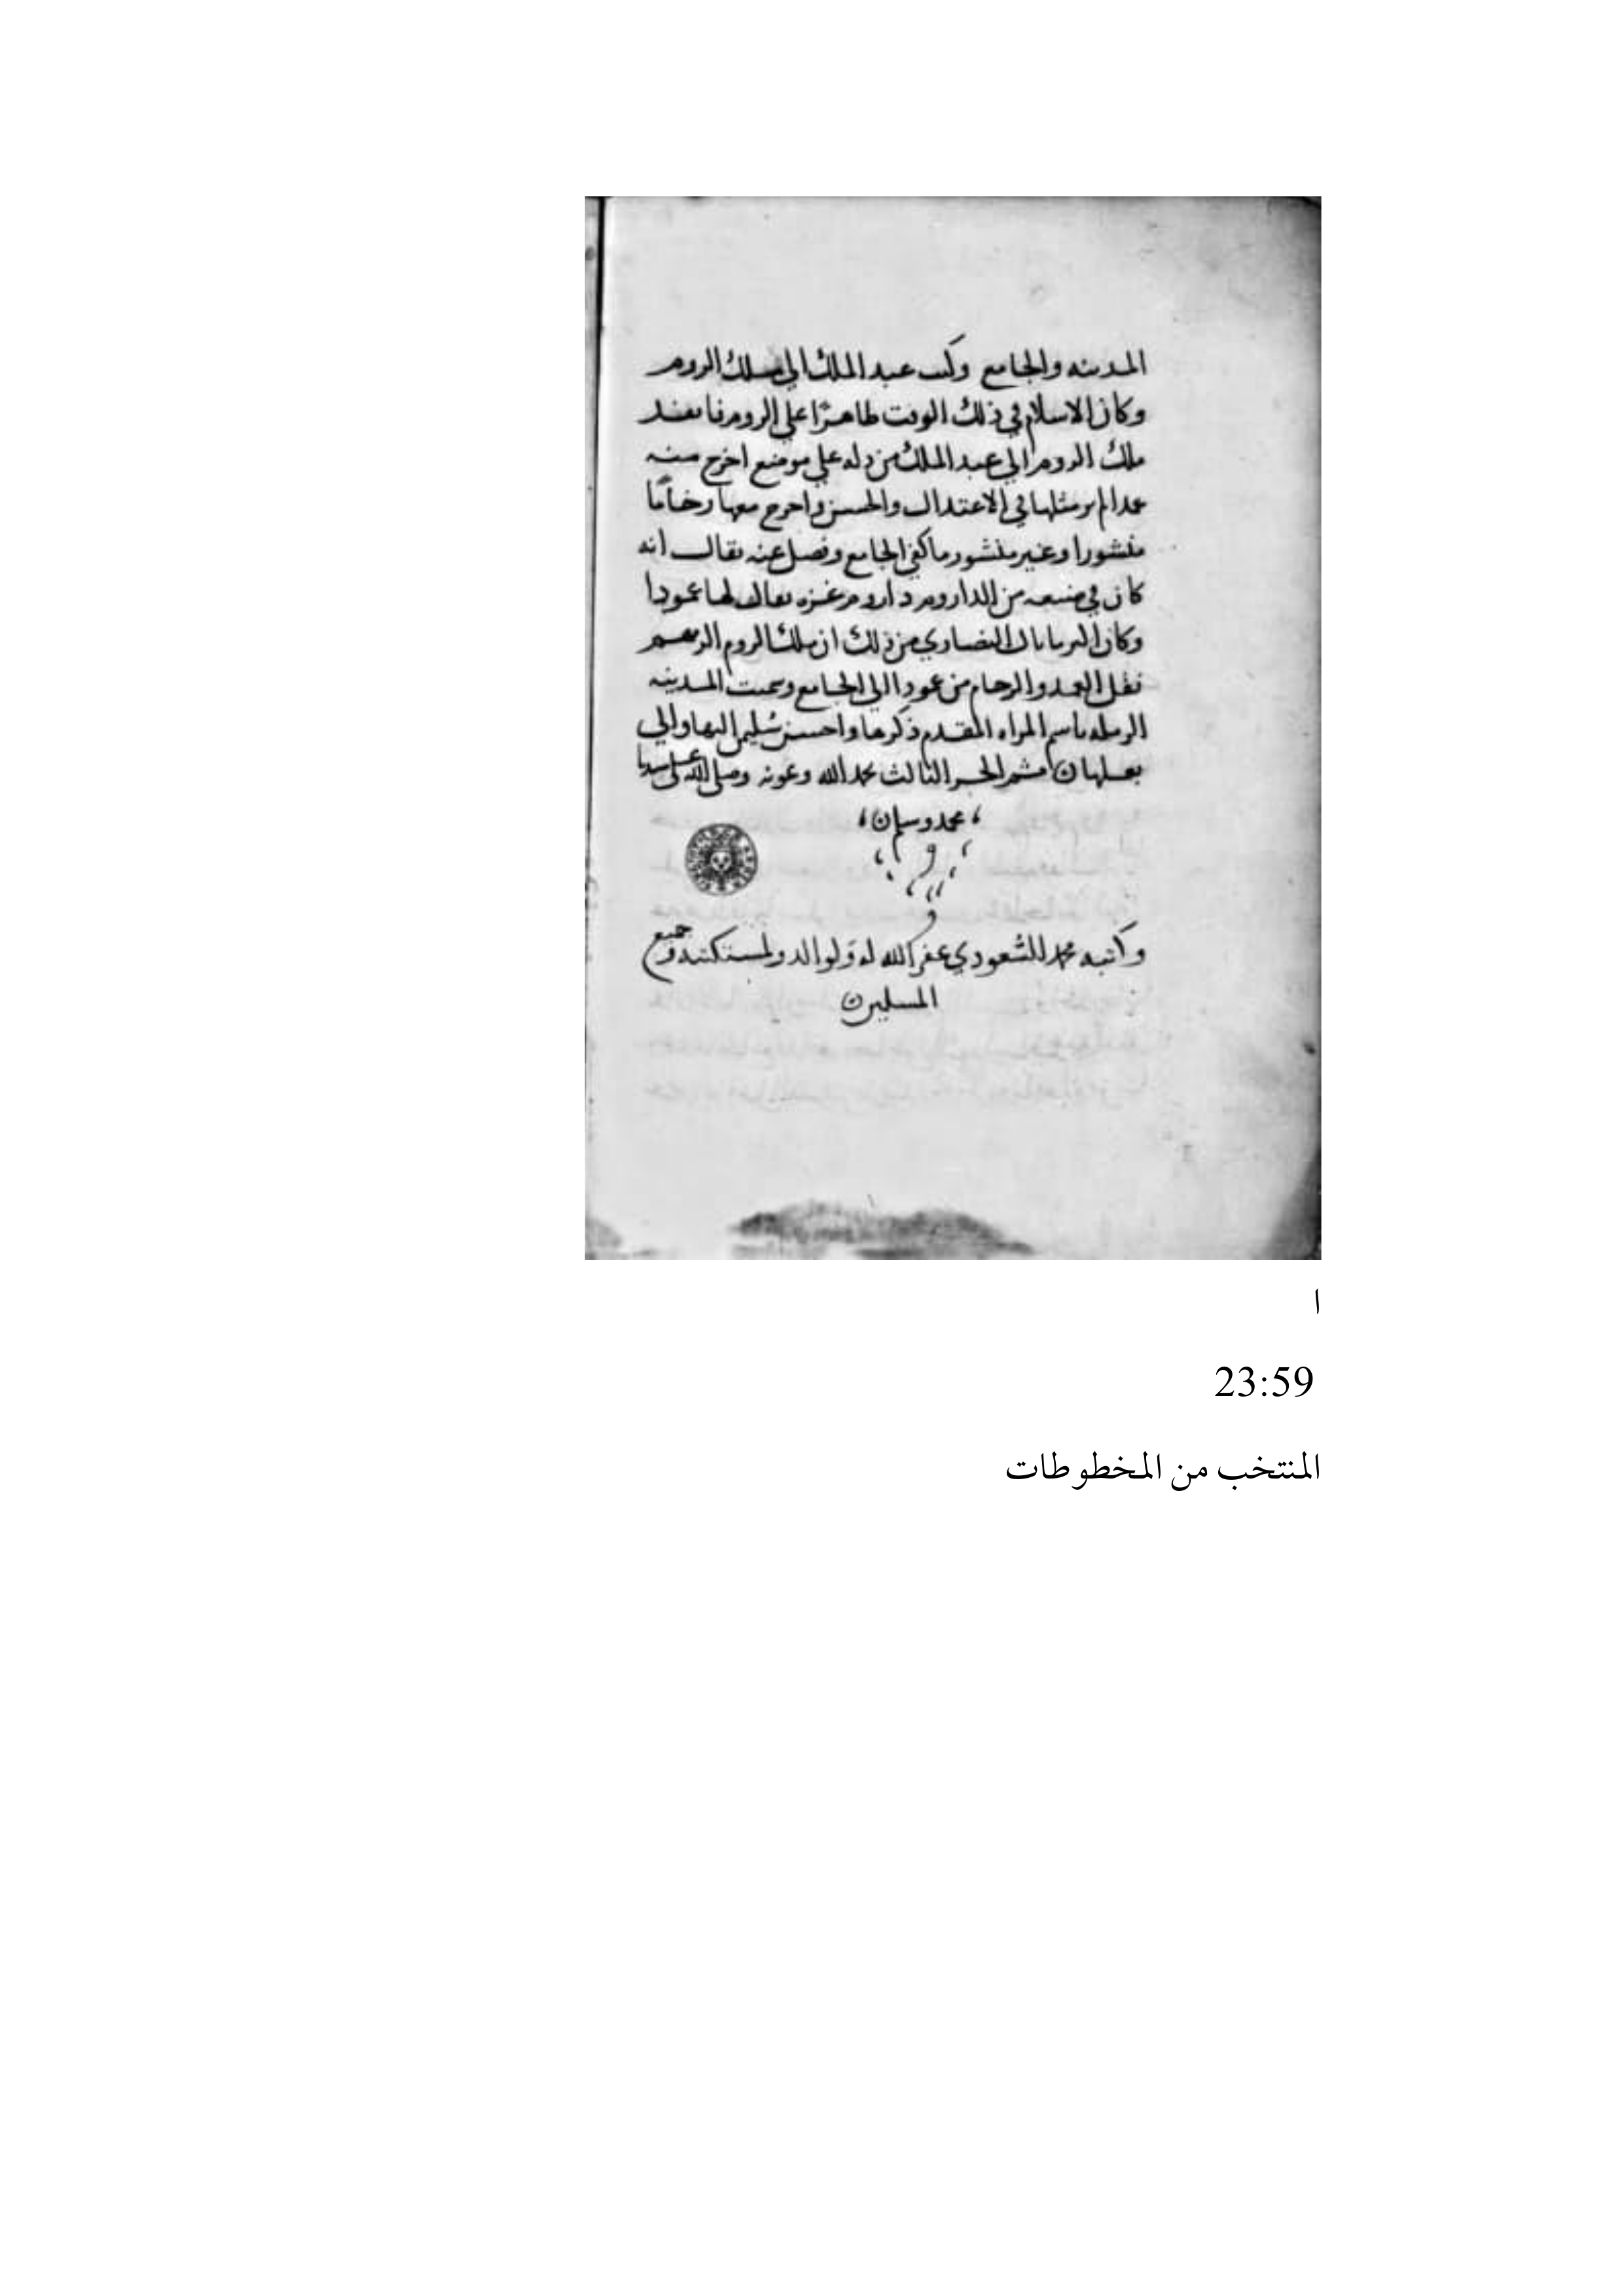 المدينه والجامع وكتب عبد الملك الى ملك الروم
وكان الاسلام في ذلك الوقت ظاهرًا على الروم فانفذ
ملك الروم الي عبد الملك من دله علي موضع اخرج منه
عمدا لم ير مثلها في الاعتدال والحسن واخرج معها رخامًا
منشورا وغير منشور ما كفي الجامع وفضل عنه يقال انه
كان في ضيعه من الداروم داروم غزه يقال لها عمودا
وكان النصاري من ذلك ان ملك الروم
نقل العمد والرخام من عمودا الي الجامع وسميت المدينه
الرمله باسم المراه المقدم ذكرها واحسن سُليمن اليها والي
بعلها ن الثالث بحمد الله وعونه وصلى الله على سيدنا
محمد وسلم
وكاتبه محمد السُعودي غفر الله له ولوالد ولمستكتبه وجميع
المسلمين
ا
23:59
المنتخب من المخطوطات